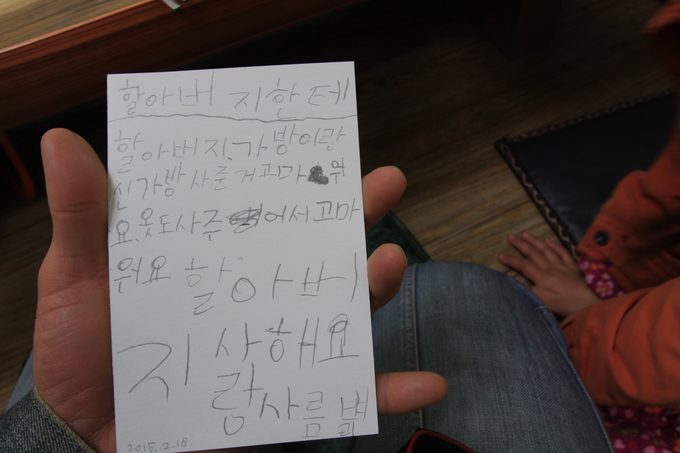 할아버 지한테
할아버지.가방이랑
신가방사준거고마워
요.옷도사주어서고마
워요 할아버
지 사해요
랑사름
2015. 2.18.